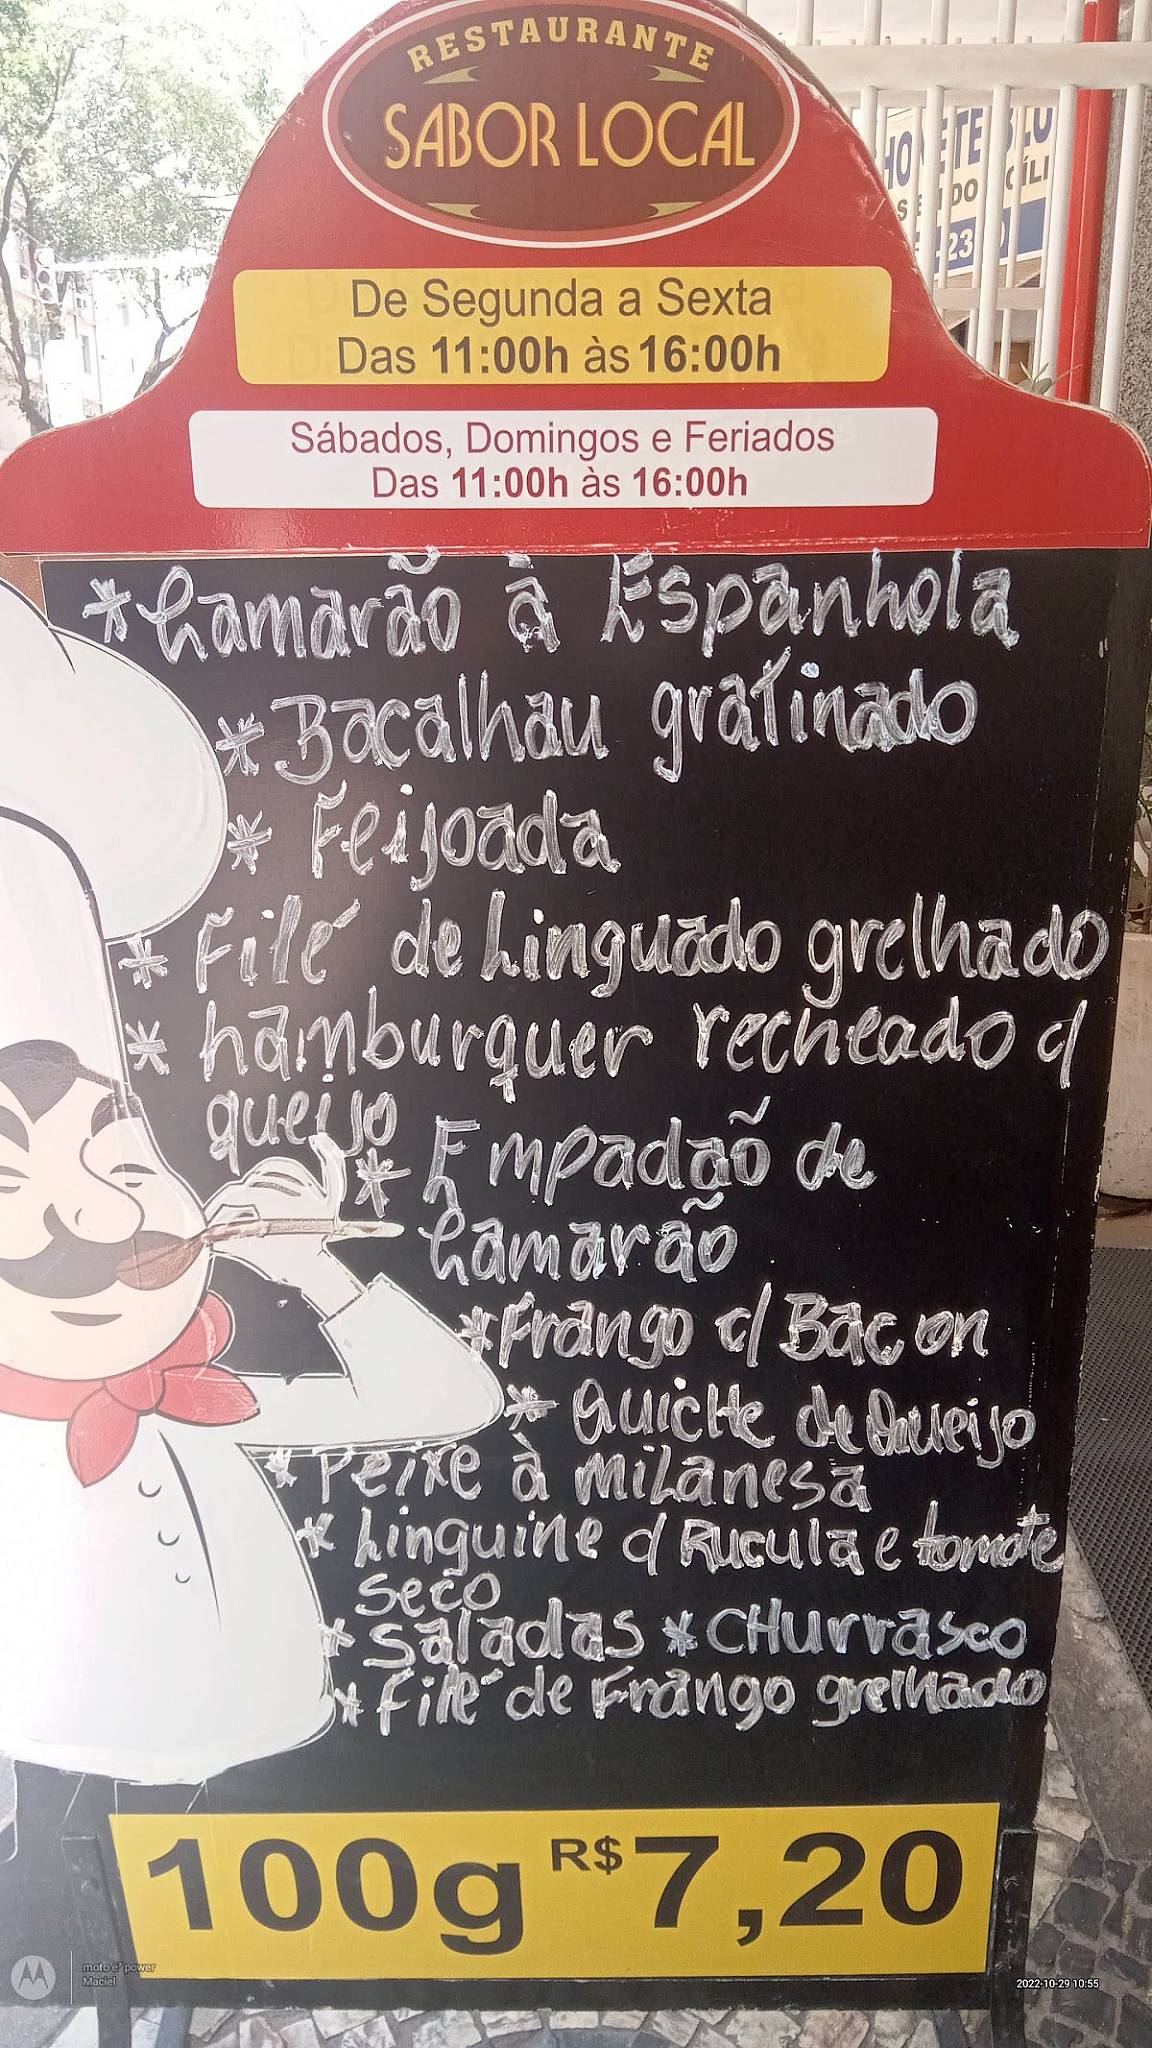 RESTAURANTE
SABOR LOCAL
De Segunda a Sexta
Das 11:00h às 16:00h
Sábados, Domingos e Feriados
Das 11:00h às 16:00h
*Camarão à Espanhola
*Bacalhau gratinado
* Feijoada
* Filé de Linguado grelhado
* hamburquer recheado c/
queijo
* Empadaõ de
Camarão
*Frango c/ Bacon
* Quiche de Queijo
*Peixe à milanesa
* Linguine c/ Rucula e tomate
seco
* Saladas * CHurrasco
* filé de Frango grelhado
100g R$ 7,20
moto e⁷ power
Maciel
2022-10-29 10:55